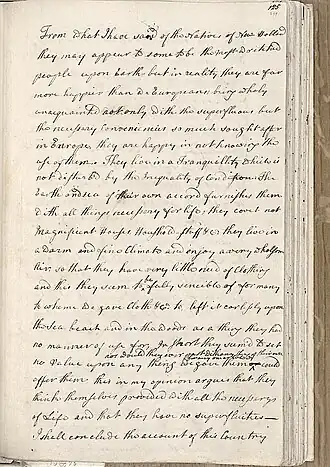 135
From what I have said of the Natives of New Holland
they may appear to some to be the most wretched
people upon Earth, but in reality they are far
more happier than we Europeans; being wholy
unacquainted not only with the superfluous but
the necessary conveniencies so much sought after
in Europe, they are happy in not knowing the
use of them. They live in a Tranquillity which is
not disturb'd by the Inequality of Condition: The
Earth and sea of their own accord furnishes them
with all things necessary for life, they covet not
Magnificent Houses, Houshold-stuff &c, they live in
a warm and fine Climate and enjoy a very wholsome
Air, so that they have very little need of Clothing
and this they seem to be fully sencible of, for many
to whome we gave Cloth &c to, left it carlessly upon
the Sea beach and in the woods as a thing they had
no manner of use for. In short they seem'd to set
no Value upon any thing we gave them
nor would they ever part with any thing of their own
for any one article we could
offer them; this in my opinion argues that they
think themselves provided with all the necessarys
of Life and that they have no superfluities—
I shall conclude the account of this Country